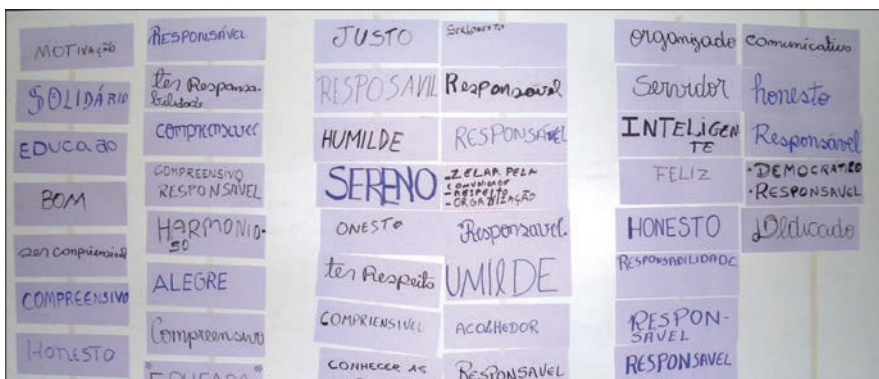 MOTIVAÇÃO
SOLIDÁRIO
EDUCAÇÃO
BOM
ser compriensivel
COMPREENSIVO
HONESTO
RESPONSÁVEL
ter Responsa-
bilidade
compreensivel
COMPREENSIVO
RESPONSAVEL
HARMONIO-
SO
ALEGRE
Compreensivo
JUSTO
RESPOSAVIL
HUMILDE
SERENO
ONESTO
ter Respeito
COMPRIENSIVEL
CONHECER AS
Responsavel
RESPONSAVEL
-ZELAR PELA
COMUNIDADE
-RESPEITO
-ORGANIZAÇÃO
Responsavel.
UMILDE
ACOLHEDOR
RESPONSAVEL
organizado
Servidor
INTELIGEN
TE
FELIZ
HONESTO
RESPONSABILIDADE
RESPON-
SAVEL
RESPONSAVEL
comunicativo
honesto
Responsável
•DEMOCRATICO
•RESPONSAVEL
Dedicado